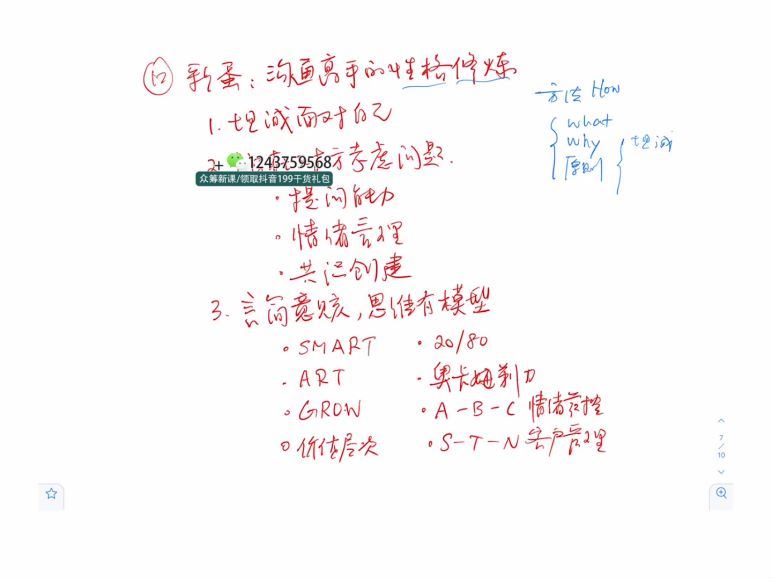 彩蛋：沟通高手的性格修炼
1. 坦诚面对自己
方法 How
what
why
原则
坦诚
2. 方考虑问题.
+ 1243759568
众筹新课/领取抖音199干货礼包
· 提问能力
· 情绪管理
· 共识创建
3. 言简意赅, 思维有模型
· SMART · 20/80
· ART · 奥卡姆剃刀
· GROW · A-B-C 情绪药控
价值层次 · S-T-N 客户管理
7
/
10